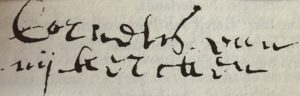 Cornelis van
nijkercken